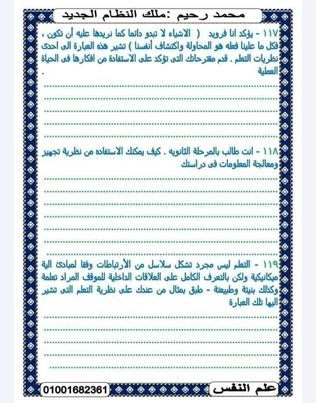 محمد رحيم :ملك النظام الجديد
١١٧ - يؤكد انا فرويد ( الاشياء لا تبدو دائما كما نريدها عليه أن تكون ،
فكل ما علينا فعله هو المحاولة واكتشاف أنفسنا ) تشير هذه العبارة الى احدى
نظريات التعلم . قدم مقترحاتك التى تؤكد على الاستفادة من افكارها في الحياة
العملية
١١٨ - انت طالب بالمرحلة الثانويه . كيف يمكنك الاستفاده من نظرية تجهيز
ومعالجة المعلومات فى دراستك
١١٩ - التعلم ليس مجرد تشكل سلاسل من الأرتباطات وفقا لمبادئ الية
ميكانيكية ولكن بالتعرف الكامل على العلاقات الداخلية للموقف المراد تعلمة
وكذلك بنيتة وطبيعتة - طبق بمثال من عندك على نظرية التعلم التى تشير
اليها تلك العبارة
علم النفس
01001682361